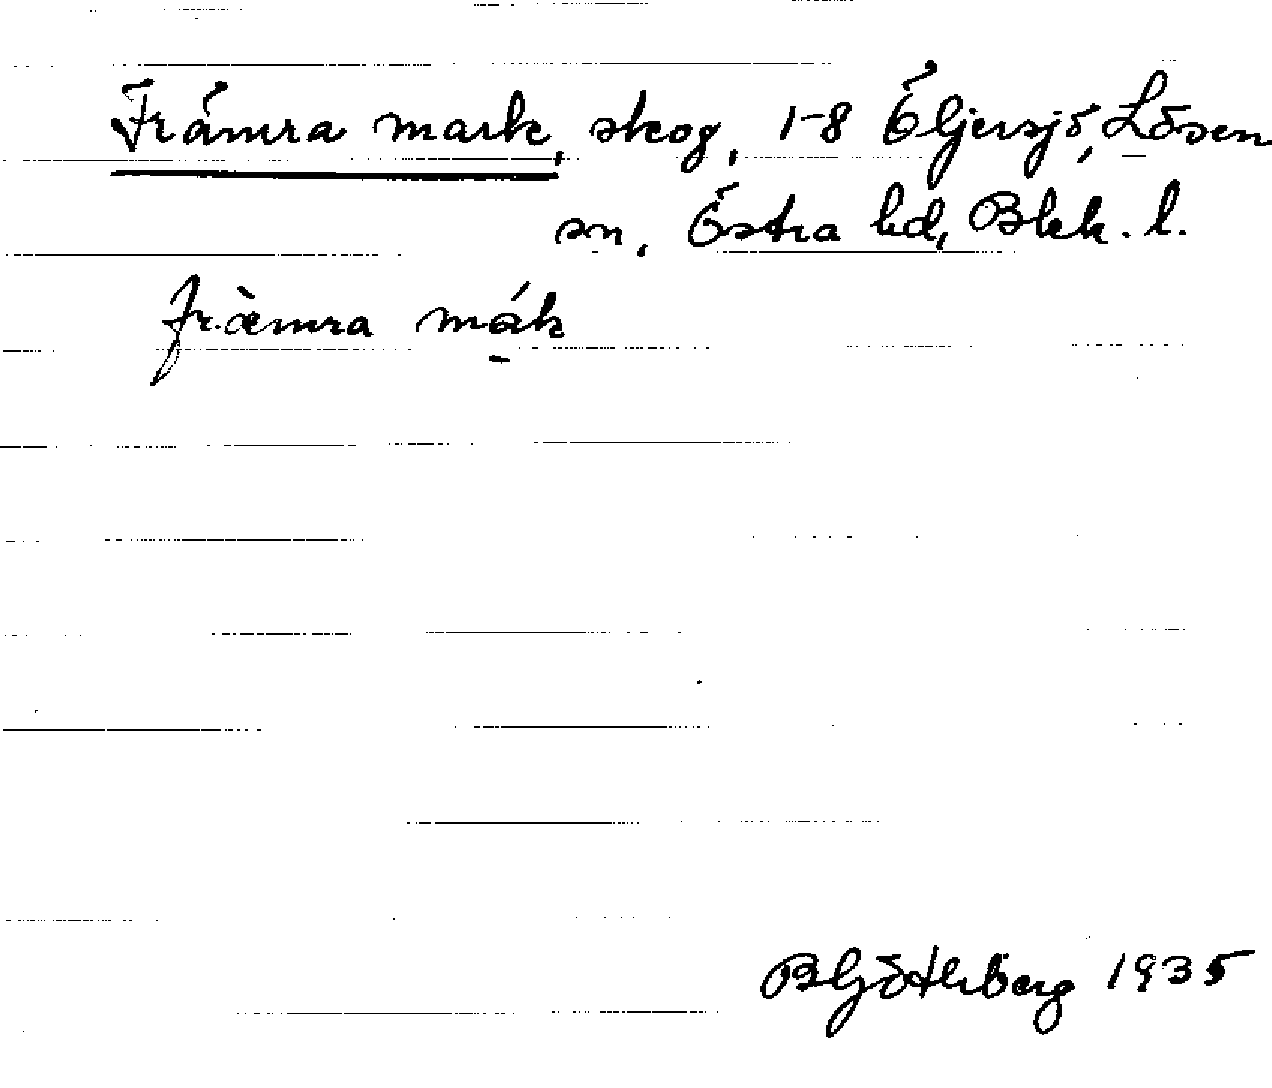 Främra mark, skog, 1-8 Öljersjö, Lösen
sn, Östra hd, Blek. l.
fràmra mák
B Götlerberg 1935